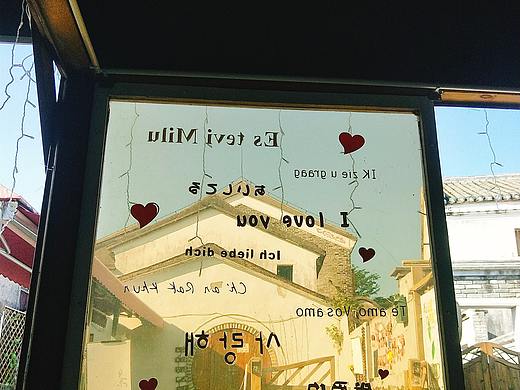 Es tevi Milu
IK zie u graag
あいしてる
I love you
Ich liebe dich
Ch'an Rak Khun
Te amo, Vos amo
사랑해